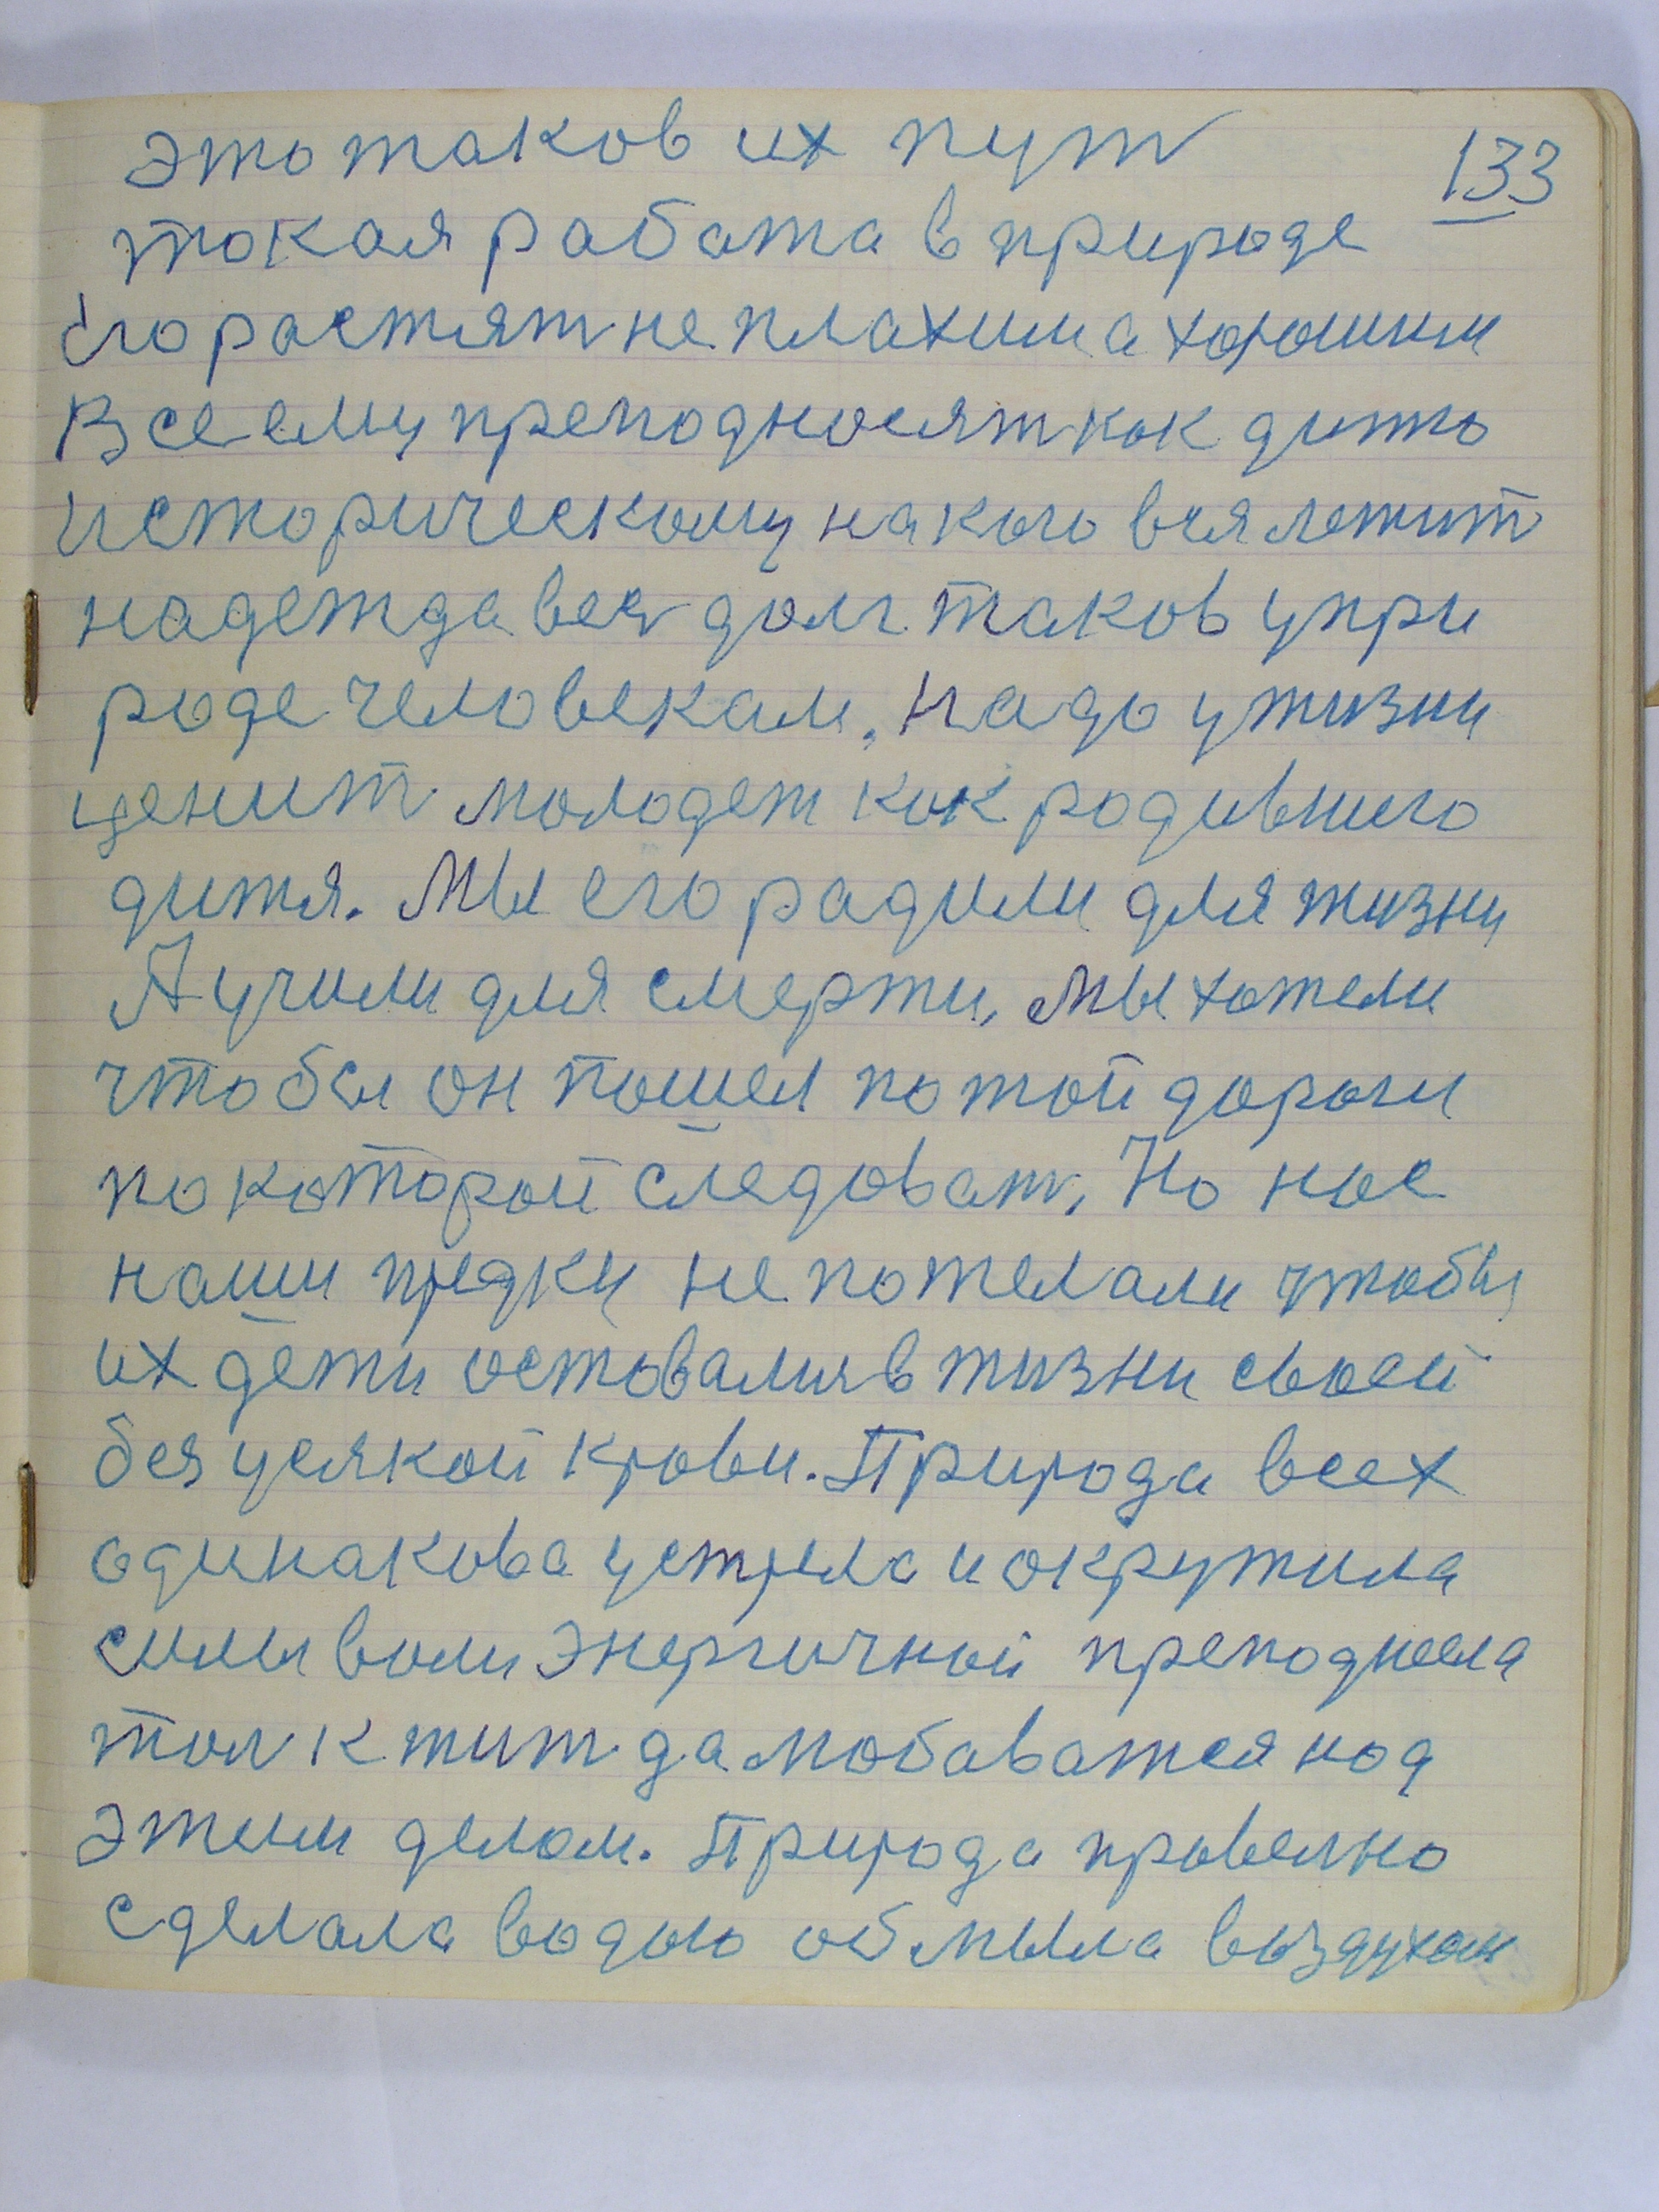 это таков их пут
133
токая работа в природе
Его растят не плахим а хорошим
Все ему преподносят как дитю
историческому на кого вся лежит
надежда вся долг таков у при
роде человекам, надо у жизни
ценит молодеж как родившего
дитя. Мы его радили для жизни
А учили для смерти, мы хотели
чтобы он пошел по той дороги
по которой следоват, Но нас
наши предки не пожелали чтобы
их дети оставалися в жизни своей
без усякой крови. Природа всех
одинакова устрела и окружила
силы воли энергичной преподнесла
толк жит да любаватся над
этим делом. Природа правелно
сделала водою обмыла воздухом